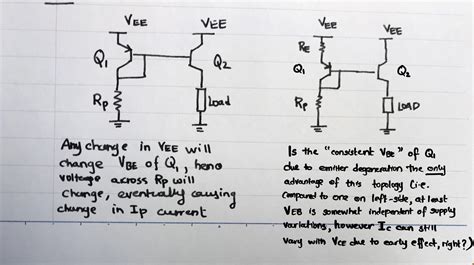 VEE VEE VEE VEE
RE
Q1 Q2 Q1 Q2
RP Load RP LOAD
Any change in VEE will
change VBE of Q1, henc
voltage across Rp will
change, eventually causing
change in Ip current
Is the "consistent VBE" of Q1
due to emitter degeneration the only
advantage of this topology (i.e.
compared to one on left-side, at least
VEB is somewhat independent of supply
variations, however Ic can still
vary with VCE due to early effect, right?)